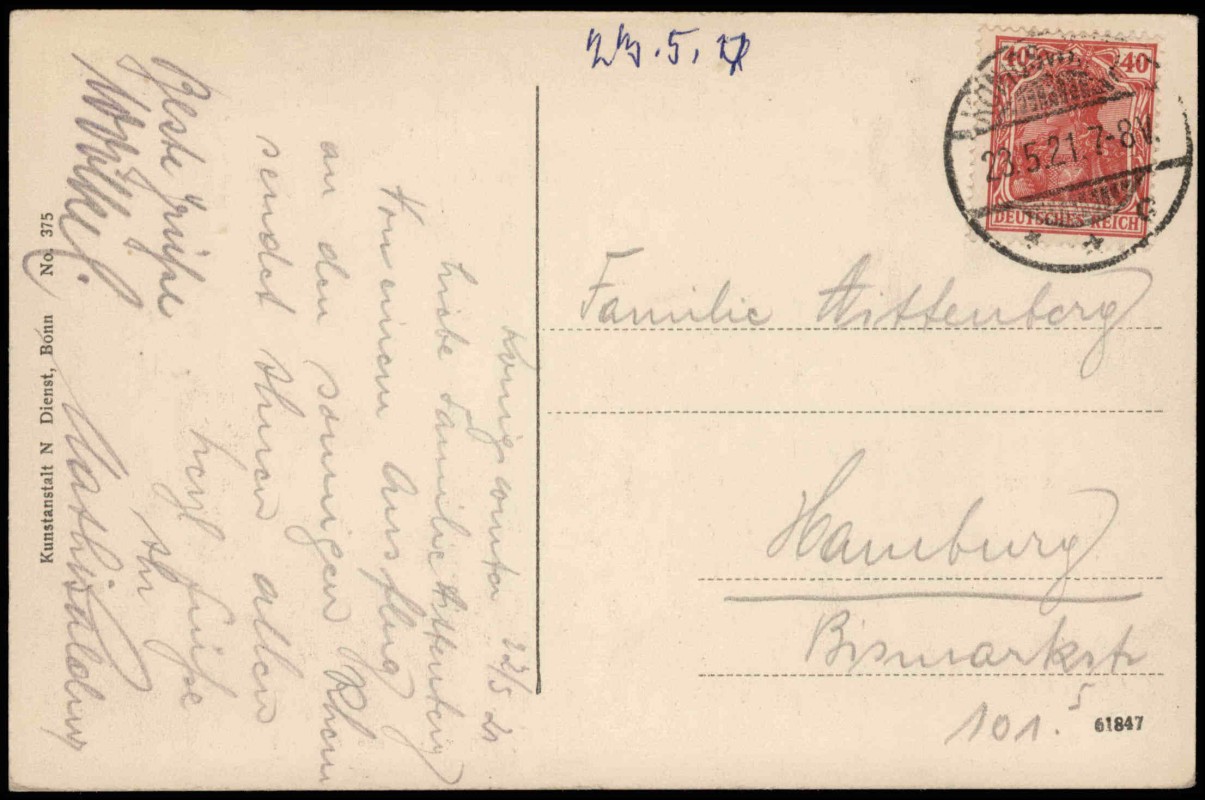 23.5.21
40 40
DEUTSCHES REICH
23.5.21.7-8V.
* * c
Familie Wittenberg
Hamburg
Bismarkstr
101. 5
61847
Königswinter 22/5 21
Liebe Familie Wittenberg
Von einem Ausflug
an den sonnigen Rhein
sendet Ihnen allen
herzl Grüße
Ihr
Beste Grüße
Kunstanstalt N Dienst, Bonn No. 375